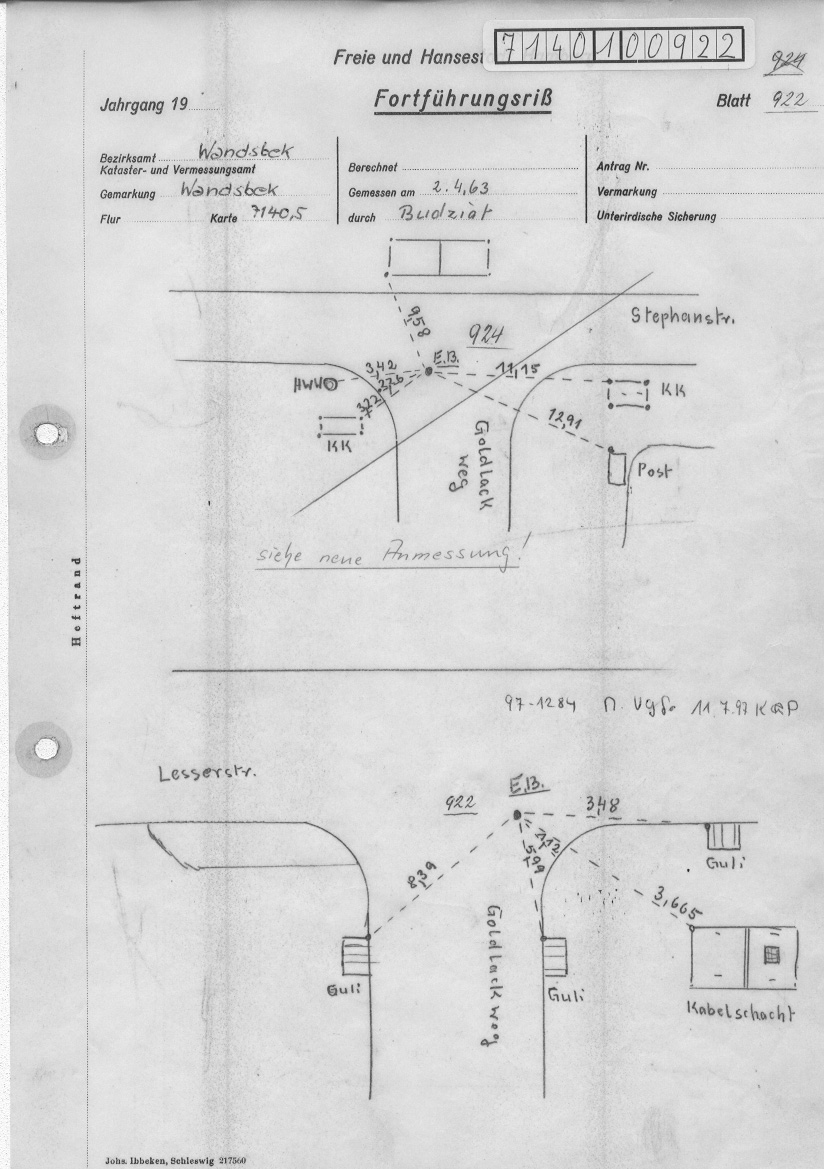 7140100922
Freie und Hansest
924
Jahrgang 19
Fortführungsriß
Blatt 922
Bezirksamt Wandsbek
Kataster- und Vermessungsamt
Gemarkung Wandsbek
Flur Karte 7140,5
Berechnet
Gemessen am 2.4.63
durch Budziat
Antrag Nr.
Vermarkung
Unterirdische Sicherung
Stephanstr.
9,58
924
E.B.
3,42
11,15
HWW
3,76
3,22
KK
KK
12,91
Goldlack
weg
Post
siehe neue Anmessung!
Heftrand
97-1284 11.7.97
Lesserstr.
922
E.B.
3,48
5,99
8,39
Guli
3,665
Goldlackweg
Guli
Guli
Kabelschacht
Johs. Ibbeken, Schleswig 217560